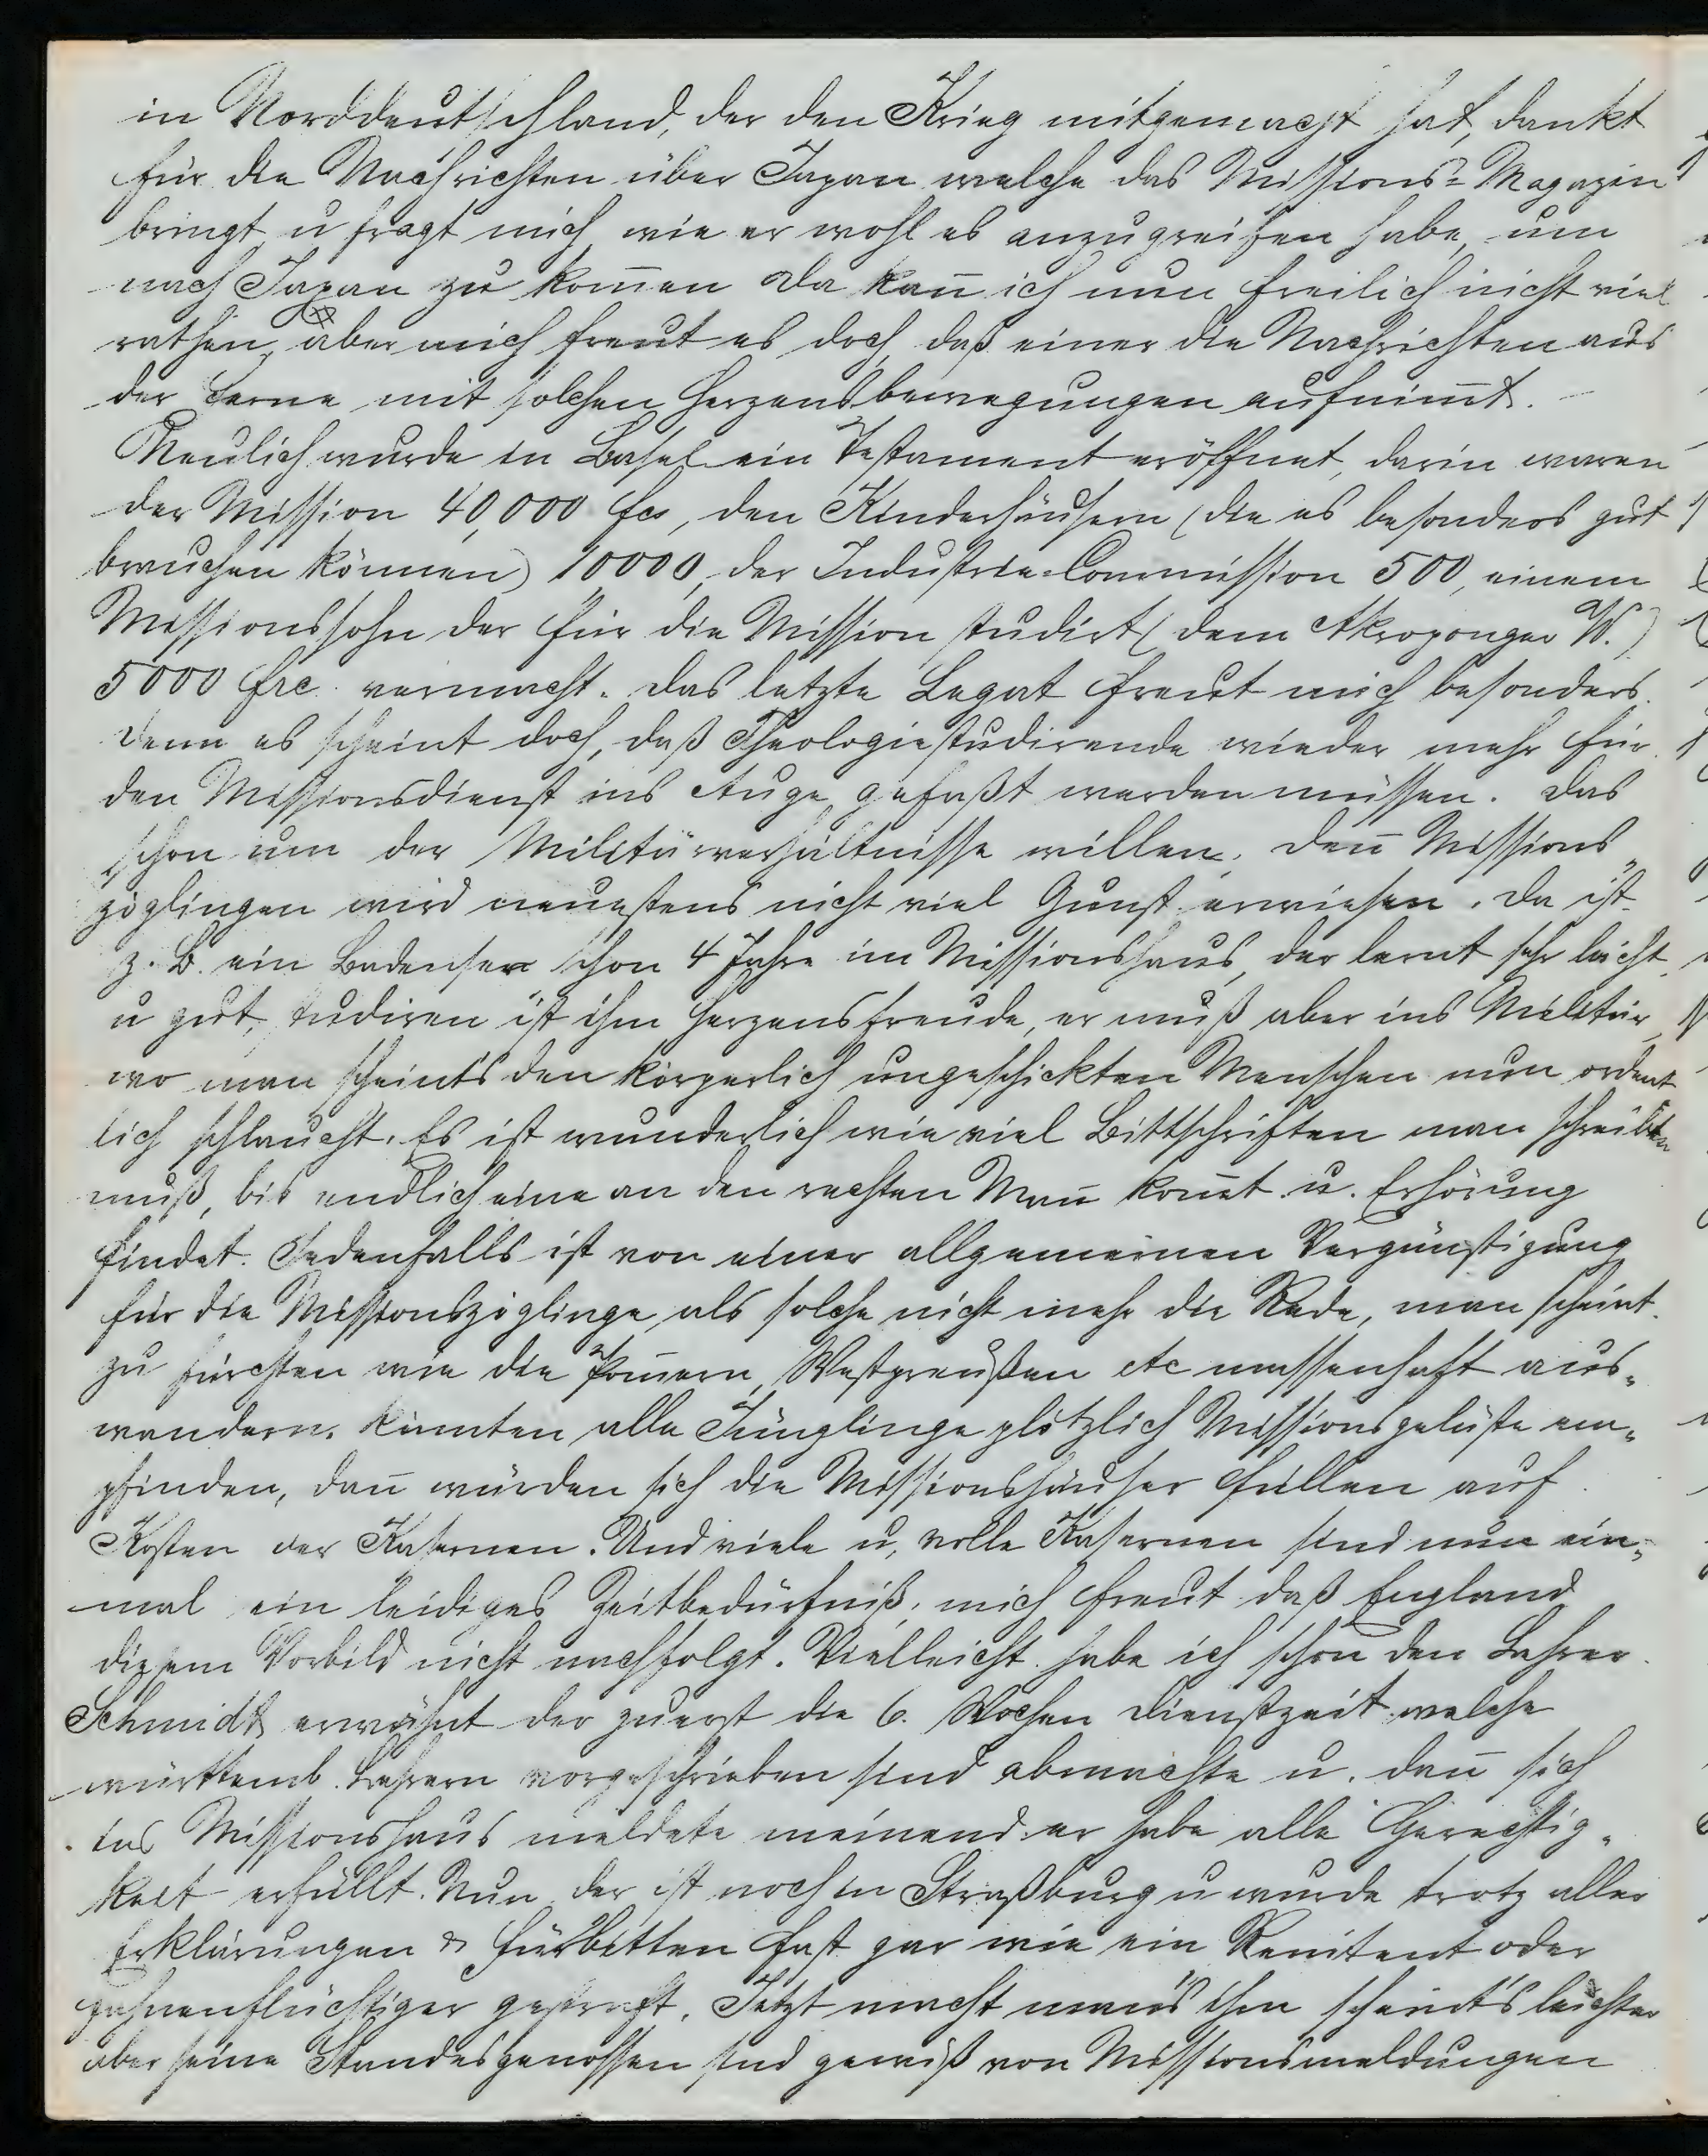 in Norddeutschland, der den Krieg mitgemacht hat, dankt
für die Nachrichten über Japan welche das Missions-Magazin
bringt u fragt mich wie er wohl es anzugreifen habe, um
nach Japan zu kom̅en Da kan̅ ich nun freilich nicht viel
rathen, aber mich freut es doch daß einer die Nachrichten aus
der Ferne mit solchen Herzensbewegungen aufnim̅t. -
Neulich wurde in Basel ein Testament eröffnet, darin waren
der Mission 40,000 fcs, den Kinderhäusern (die es besonders gut
brauchen können) 10000, der Industrie-Commission 500, einem
Missionssohn der für die Mission studirt (dem Akroponger W.)
5000 frc. vermacht. Das letzte Legat freut mich besonders.
denn es scheint doch, daß Theologiestudirende wieder mehr für
den Missionsdienst ins Auge gefaßt werden müssen. Das
schon um der Militärverhältnisse willen, den̅ Missions„
zöglingen wird neuestens nicht viel Gunst erwiesen. Da ist
z. B. ein Badenser schon 4 Jahre im Missionshaus, der lernt sehr leicht
u gut, studiren ist ihm Herzensfreude, er muß aber ins Militär,
wo man scheints den körperlich ungeschickten Menschen nun ordent
lich schlaucht. Es ist wunderlich wie viel Bittschriften man schreiben
muß, bis endlich eine an den rechten Man̅ kom̅t u. Erhörung
findet. Jedenfalls ist von einer allgemeinen Vergünstigung
für die Missionszöglinge als solche nicht mehr die Rede, man scheint
zu fürchten wie die Pom̅ern, Westpreußen etc massenhaft aus„
wandern, könnten alle Jünglinge plötzlich Missionsgelüste em„
pfinden, dan̅ würden sich die Missionshäuser füllen auf
Kosten der Kasernen. Und viele u, volle Kasernen sind nun ein„
mal ein leidiges Zeitbedürfniß; mich freut daß England
diesem Vorbild nicht nachfolgt. Vielleicht habe ich schon den Lehrer
Schmidt erwähnt der zuerst die 6. Wochen Dienstzeit welche
württemb. Lehrern vorgeschrieben sind abmachte u. dan̅ sich
ins Missionshaus meldete meinend er habe alle Gerechtig„
keit erfüllt. Nun der ist noch in Straßburg u wurde trotz aller
Erklärungen & Fürbitten fast gar wie ein Renitent oder
fahnenflüchtiger gestraft. Jetzt macht man's ihm scheint's leichter
aber seine Standesgenossen sind gewiß von Missionsmeldungen